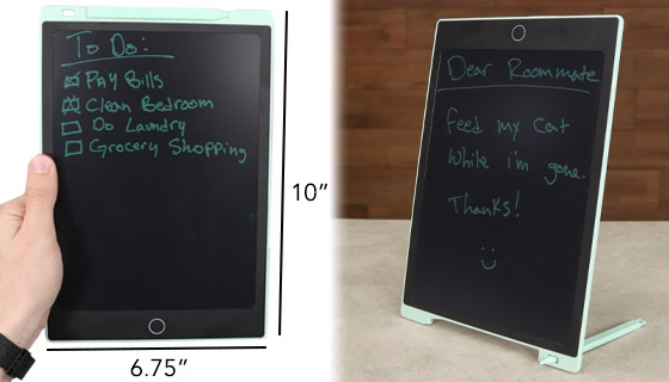 To Do:
Pay Bills
Clean Bedroom
Do Laundry
Grocery Shopping
10”
6.75”
Dear Roommate
Feed my cat
While i'm gone.
Thanks!